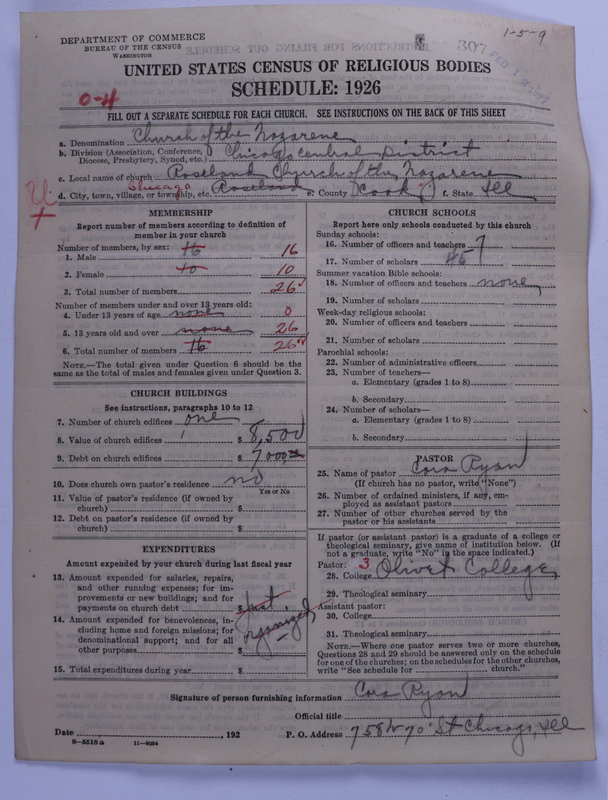 DEPARTMENT OF COMMERCE
BUREAU OF THE CENSUS
WASHINGTON
307
1-5-9
UNITED STATES CENSUS OF RELIGIOUS BODIES
SCHEDULE: 1926
0-4
FILL OUT A SEPARATE SCHEDULE FOR EACH CHURCH. SEE INSTRUCTIONS ON THE BACK OF THIS SHEET
a. Denomination Church of the Nazarene
b. Division (Association, Conference, Diocese, Presbytery, Synod, etc.) Chicago Central District
c. Local name of church Roseland Church of the Nazarene
d. City, town, village, or township, etc. Chicago Roseland e. County (Cook) f. State Ill
U
MEMBERSHIP
Report number of members according to definition of
member in your church
Number of members, by sex:
1. Male 16 16
2. Female 10 10
3. Total number of members 26
Number of members under and over 13 years old:
4. Under 13 years of age none 0
5. 13 years old and over none 26
6. Total number of members 16 26
NOTE.—The total given under Question 6 should be
same as the total of males and females given under Question 3.
CHURCH BUILDINGS
See instructions, paragraphs 10 to 12
7. Number of church edifices one
8. Value of church edifices $ 8,500
9. Debt on church edifices $ 7000
10. Does church own pastor's residence no
Yes or No
11. Value of pastor's residence (if owned by
church) $
12. Debt on pastor's residence (if owned by
church) $
EXPENDITURES
Amount expended by your church during last fiscal year
13. Amount expended for salaries, repairs,
and other running expenses; for im-
provements or new buildings; and for
payments on church debt $ Just
14. Amount expended for benevolences, in-
cluding home and foreign missions; for
denominational support; and for all
other purposes $ organized
15. Total expenditures during year $
CHURCH SCHOOLS
Report here only schools conducted by this church
Sunday schools:
16. Number of officers and teachers 7
17. Number of scholars 45
Summer vacation Bible schools:
18. Number of officers and teachers none
19. Number of scholars
Week-day religious schools:
20. Number of officers and teachers
21. Number of scholars
Parochial schools:
22. Number of administrative officers
23. Number of teachers—
a. Elementary (grades 1 to 8)
b. Secondary
24. Number of scholars—
a. Elementary (grades 1 to 8)
b. Secondary
PASTOR
25. Name of pastor Cora Ryan
(If church has no pastor, write "None")
26. Number of ordained ministers, if any, em-
ployed as assistant pastors
27. Number of other churches served by the
pastor or his assistants
If pastor (or assistant pastor) is a graduate of a college or
theological seminary, give name of institution below. (If
not a graduate, write "No" in the space indicated.)
Pastor: 3
28. College Olivet College
29. Theological seminary
Assistant pastor:
30. College
31. Theological seminary
NOTE.—Where one pastor serves two or more churches,
Questions 28 and 29 should be answered only on the schedule
for one of the churches; on the schedules for the other churches,
write "See schedule for church."
Signature of person furnishing information Cora Ryan
Official title
Date , 192 P. O. Address 758 W 70 St Chicago, Ill
8—5518a 11—9034